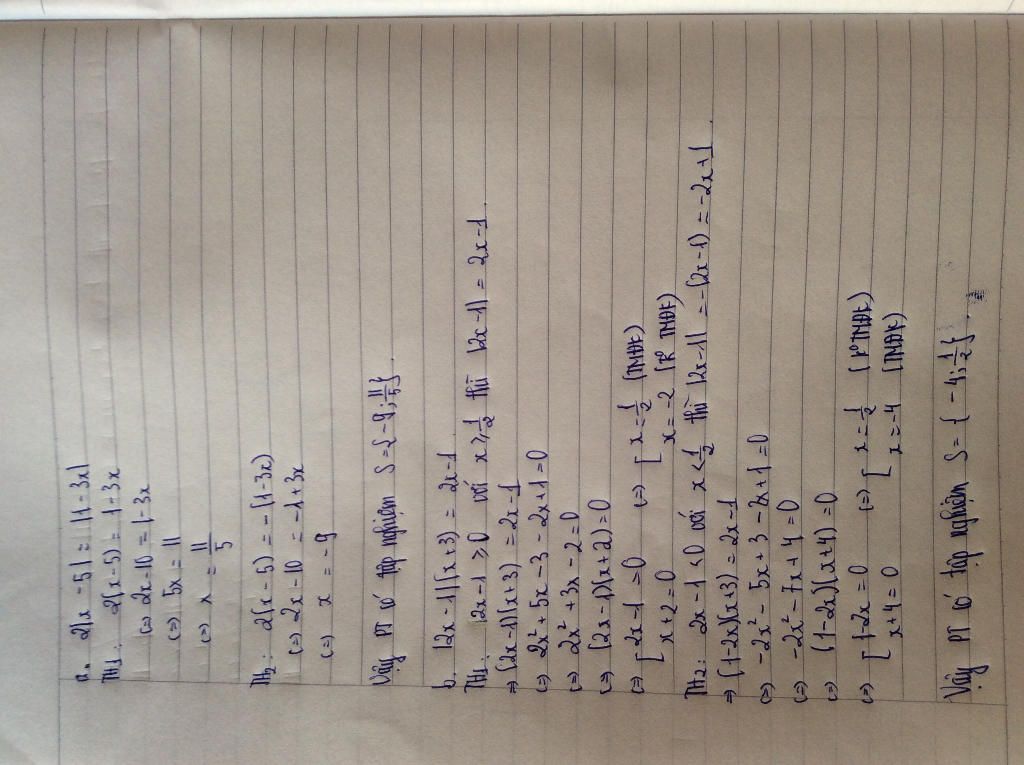 a. 2|x - 5| = |1 - 3x|
TH₁: 2(x - 5) = 1 - 3x
(=) 2x - 10 = 1 - 3x
(=) 5x = 11
(=) x = 11/5
TH₂: 2(x - 5) = - (1 - 3x)
(=) 2x - 10 = -1 + 3x
(=) x = -9
Vậy PT có tập nghiệm S = {-9; 11/5}.
b. |2x - 1|(x + 3) = 2x - 1
TH₁: 2x - 1 ≥ 0 với x ≥ 1/2 thì |2x - 1| = 2x - 1.
⇒ (2x - 1)(x + 3) = 2x - 1
(=) 2x² + 5x - 3 - 2x + 1 = 0
(=) 2x² + 3x - 2 = 0
(=) (2x - 1)(x + 2) = 0
(=) [ 2x - 1 = 0 (=) [ x = 1/2 (TMĐK)
x + 2 = 0 x = -2 (K° TMĐK)
TH₂: 2x - 1 < 0 với x < 1/2 thì |2x - 1| = -(2x - 1) = -2x + 1.
⇒ (1 - 2x)(x + 3) = 2x - 1
(=) -2x² - 5x + 3 - 2x + 1 = 0
(=) -2x² - 7x + 4 = 0
(=) (1 - 2x)(x + 4) = 0
(=) [ 1 - 2x = 0 (=) [ x = 1/2 (K° TMĐK)
x + 4 = 0 x = -4 (TMĐK)
Vậy PT có tập nghiệm S = { -4; 1/2 }.